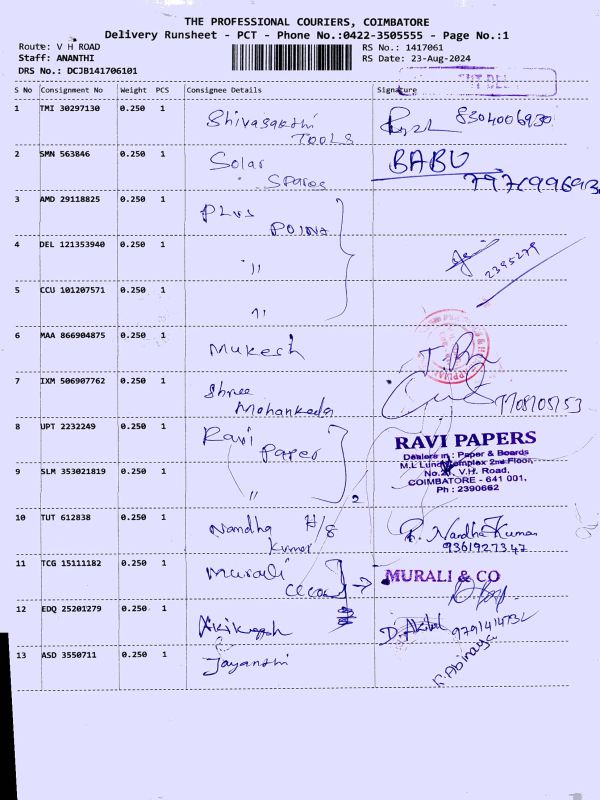 THE PROFESSIONAL COURIERS, COIMBATORE
Delivery Runsheet - PCT - Phone No.:0422-3505555 - Page No.:1
Route: V H ROAD
RS No.: 1417061
Staff: ANANTHI
RS Date: 23-Aug-2024
DRS No.: DCJB141706101
S No Consignment No Weight PCS Consignee Details Signature
1 TMI 30297130 0.250 1 Shivasakthi 8304006930
TOOLS
2 SMN 563846 0.250 1 Solar BABU
Spares
3 AMD 29118825 0.250 1 Plus
Point
4 DEL 121353940 0.250 1 " 2395279
5 CCU 101207571 0.250 1 "
6 MAA 866904875 0.250 1 Mukesh
7 IXM 506907762 0.250 1 Shree
Mohankeda
8 UPT 2232249 0.250 1 Ravi
Paper
RAVI PAPERS
Dealers in : Paper & Boards
M.L Lund Complex 2nd Floor,
9 SLM 353021819 0.250 1 "
No. V.H. Road,
COIMBATORE - 641 001.
Ph : 2390662
2
10 TUT 612838 0.250 1 Nandha H/8 R. Nandha Kumar
Kumar 9361927347
11 TCG 15111182 0.250 1 Murali
MURALI & CO
12 EDQ 25201279 0.250 1
D. Akilal
13 ASD 3550711 0.250 1 Jayanthi
R. Abinaya